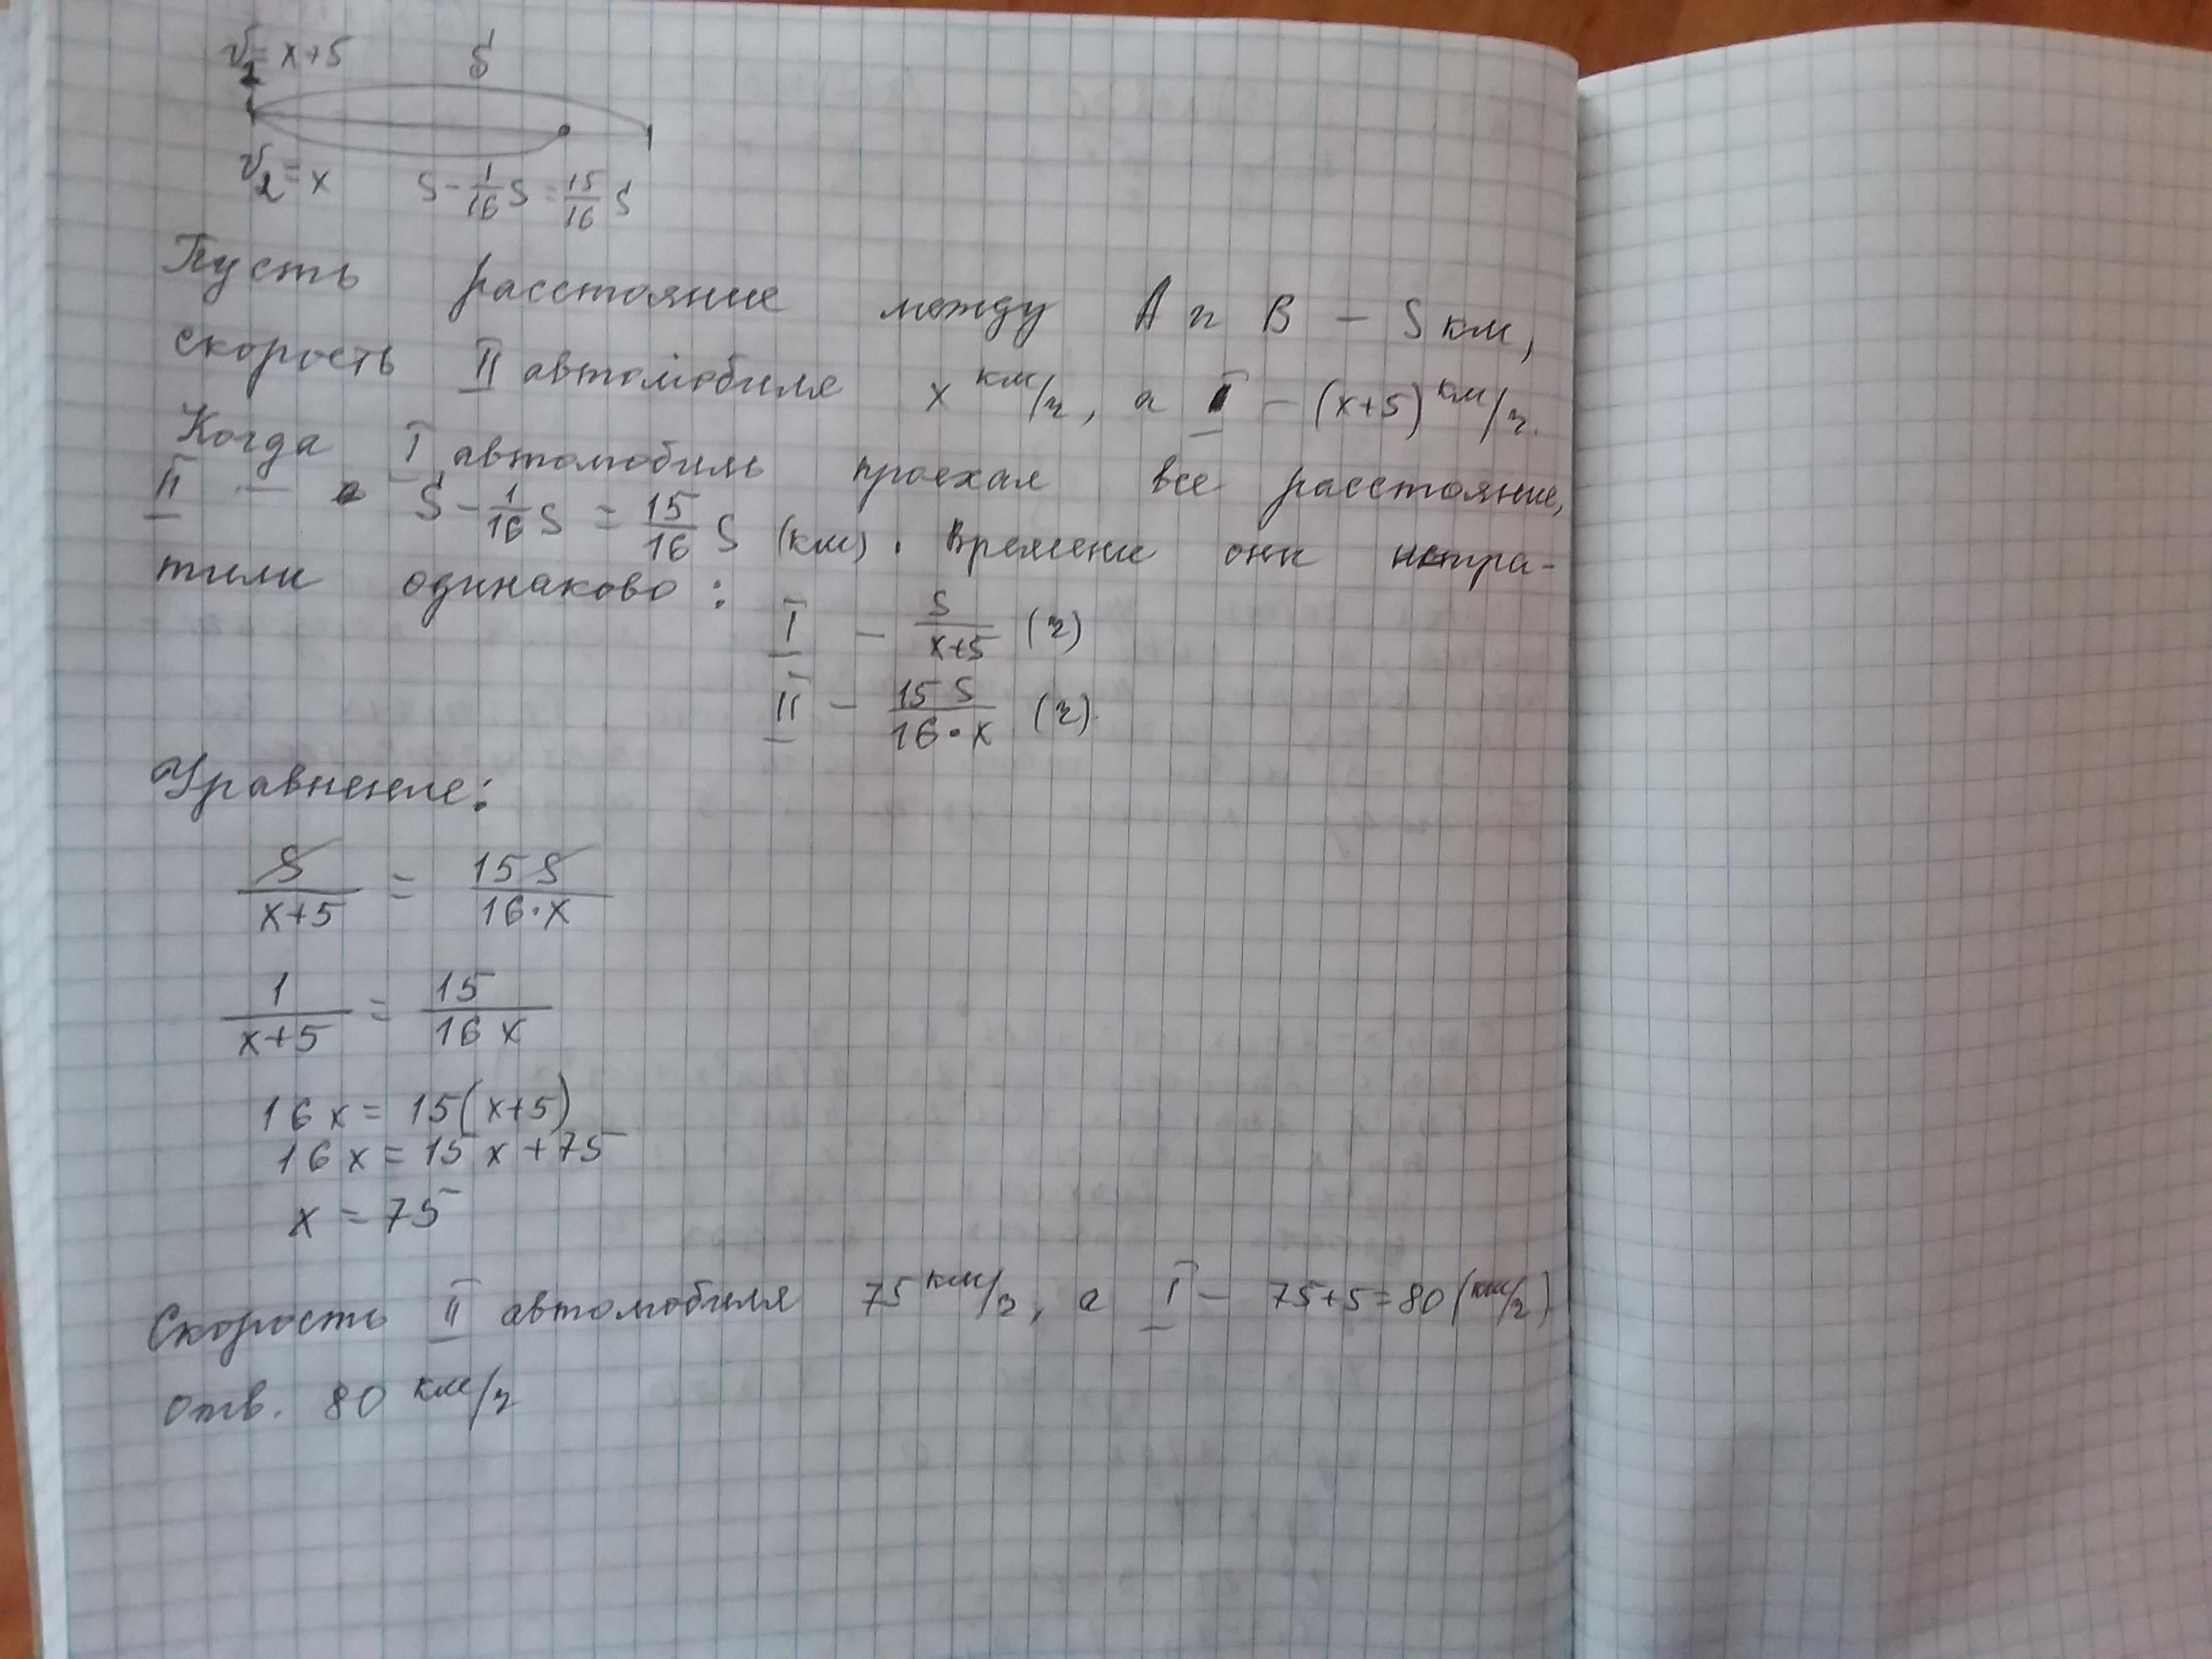 V₁ = x+5 S
V₂ = x S - 1/16 S = 15/16 S
Пусть расстояние между А и В – S км,
скорость II автомобиля x км/ч, а I – (x+5) км/ч.
Когда I автомобиль проехал все расстояние,
II – S - 1/16 S = 15/16 S (км). Времени они истра-
тили одинаково:
I – S/(x+5) (ч)
II – 15 S/(16·x) (ч).
Уравнение:
S/(x+5) = 15 S/(16·x)
1/(x+5) = 15/(16 x)
16 x = 15(x+5)
16 x = 15 x + 75
x = 75
Скорость II автомобиля 75 км/ч, а I – 75+5=80 (км/ч)
Отв. 80 км/ч